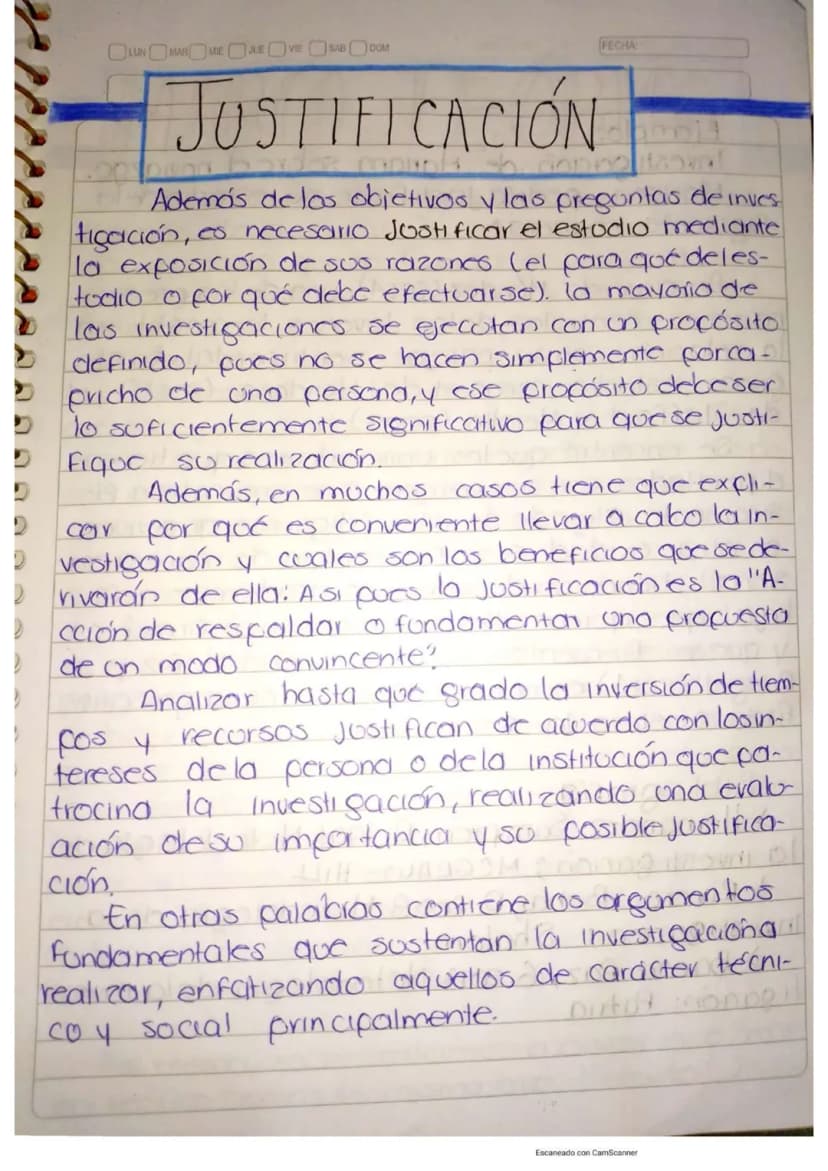 LUN MAR MIE JUE VIE SAB DOM
FECHA:
JUSTIFICACIÓN
Además de los objetivos y las preguntas de inves
tigación, es necesario Justificar el estudio mediante
la exposición de sus razones (el para qué del es-
tudio o por qué debe efectuarse). la mayoria de
las investigaciones se ejecutan con un propósito
definido, pues no se hacen simplemente por ca-
pricho de una persona, y ese propósito debe ser
lo suficientemente significativo para que se justi-
Fique su realización.
Además, en muchos casos tiene que expli-
car por qué es conveniente llevar a cabo la in-
vestigación y cuales son los beneficios que se de-
rivarán de ella: Asi pues la Justificación es la "A-
cción de respaldar o fundamentar una propuesta
de un modo convincente"
Analizar hasta que grado la inversión de tiem-
pos y recursos Justifican de acuerdo con los in-
tereses de la persona o de la institución que pa-
trocina la investigación, realizando una evalu-
ación de su importancia y su posible justifica-
ción.
En otras palabras contiene los argumentos
Fundamentales que sustentan la investigación a
realizar, enfatizando aquellos de carácter técni-
co y social principalmente.
Escaneado con CamScanner